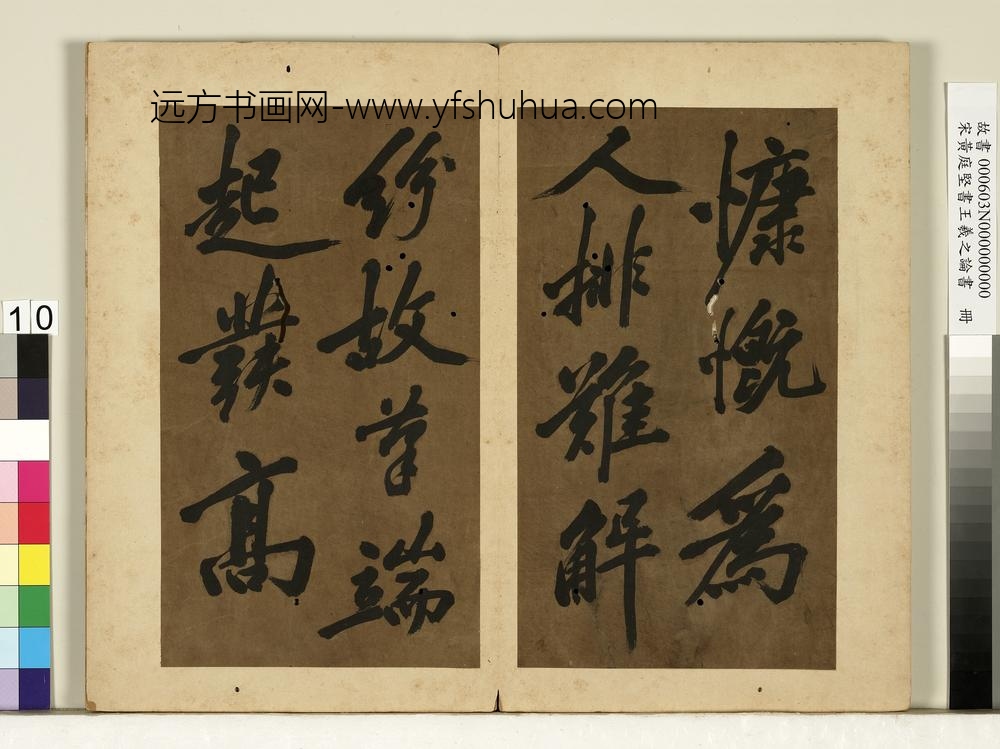 远方书画网-www.yfshuhua.com
慷慨為
人排難解
紛故筆端
起高
故書 000603N000000000
宋黃庭堅書王羲之論書 冊
10